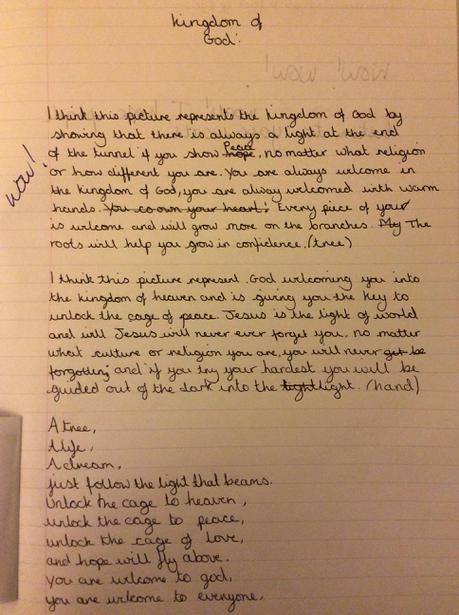 Kingdom of
God:
I think this picture represents the kingdom of God by
showing that there is always a light at the end
of the tunnel if you show hope Peace, no matter what religion
or how different you are. You are always welcome in
the kingdom of God, you are alway welcomed with warm
wow!
hands. You co own your heart. Every piece of your
is welcome and will grow more on the branches. My The
roots will help you grow in confidence. (tree)
I think this picture represent God welcoming you into
the kingdom of heaven and is giving you the key to
unlock the cage of peace. Jesus is the light of world
and will Jesus will never ever forget you, no matter
what culture or religion you are, you will never get be
forgotting and if you try your hardest you will be
guided out of the dark into the light. (hand)
A tree,
A life,
A dream,
just follow the light that beams.
Unlock the cage to heaven,
unlock the cage to peace,
unlock the cage of love,
and hope will fly above.
You are welcome to god,
you are welcome to everyone.